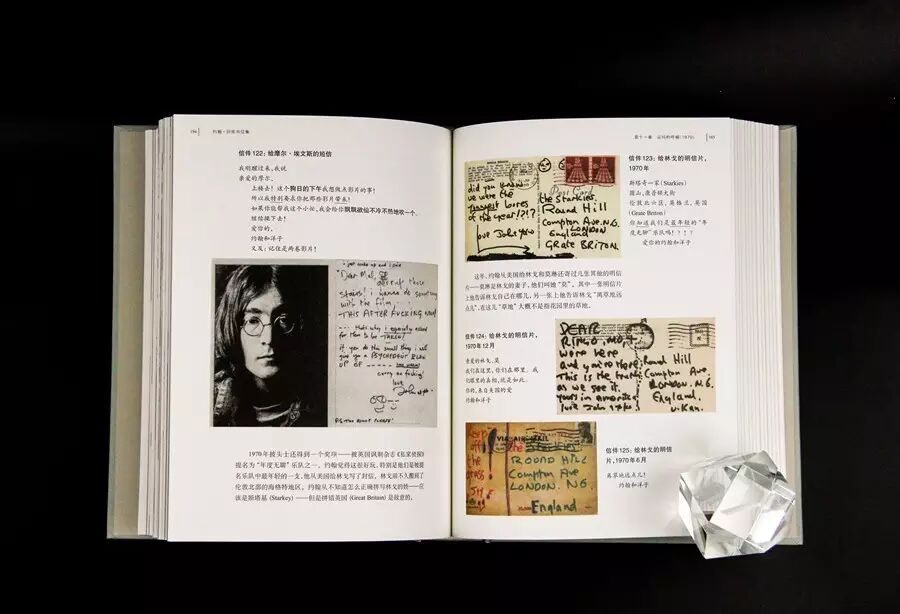 194
约翰·列侬书信集
信件122:给摩尔·埃文斯的短信
我刚醒过来,我说
亲爱的摩尔,
上楼去!这个狗日的下午我想做点影片的事!
所以我特别要求你把那些影片带来!
如果你能帮我这个小忙,我会给你飘飘欲仙不冷不热地吹一个。
继续操下去!
爱你的,
约翰和洋子
又及:记住是两卷影片!
i just woke up and i said
"Dear Mal,
stairs! i wanna do something
with the film,
-THIS AFTER FUCKING NOON!
--- that's why i especially asked
for them to be TAKEN!
if you do this small thing i will
give you a PSYCHEDELIC BLOW
carry on fucking!
love
John
1970年披头士还得到一个奖项——被英国讽刺杂志《私家侦探》
提名为“年度无聊”乐队之一。约翰觉得这很好玩,特别是他们是被提
名乐队中最年轻的一支,他从美国给林戈写了封信。林戈前不久搬到了
伦敦北部的海格特地区。约翰从不知道怎么正确拼写林戈的姓——应
该是斯塔基 (Starkey)——但是拼错英国 (Great Britain) 是故意的。
第十一章
(1970)
195
did you know
we were the
youngest bores
of the year!?!?
love John
Post Card
the Starkies,
Round Hill
Compton Ave,
LONDON
England
GRATE BRITON.
信件123:给林戈的明信片,
1970年
斯塔奇一家(Starkies)
圆山,康普顿大街
伦敦北六区,英格兰,英国
(Grate Briton)
你知道我们是最年轻的“年
度无聊”乐队吗!?!?
爱你的约翰和洋子
这年,约翰从美国给林戈和莫琳还寄过几张其他的明信
片——莫琳是林戈的妻子,他们叫她“莫”。其中一张明信片
上他告诉林戈自己在哪儿,另一张上他告诉林戈“离草地远
点儿”,在这儿“草地”大概不是指花园里的草地。
信件124:给林戈的明信片,
1970年12月
亲爱的林戈、莫
我们在这里,你们在那里。我
们眼里的真相,就是如此。
你的,来自美国的爱
约翰和洋子
DEAR
RINGO, MO,
were here
and you're there
This is the truth
as we see it
yours in america
love John
Round Hill
Compton Ave.
LONDON. N.6.
England,
u.Kan.
keep
off
the
grass!
VIA AIR MAIL
the Starkies
ROUND HILL
Compton Ave
LONDON. N6.
England
信件125:给林戈的明信
片,1970年6月
离草地远点儿!
约翰和洋子